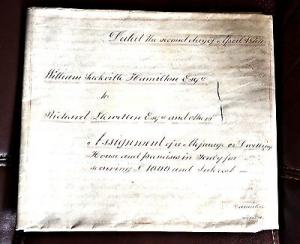 Dated the second day of April
William Sackville Hamilton Esqre
to
Richard Llewellin Esqre and others
Assignment of a Messuage or Dwelling
House and premises in Tenby for
securing £1000 and Interest